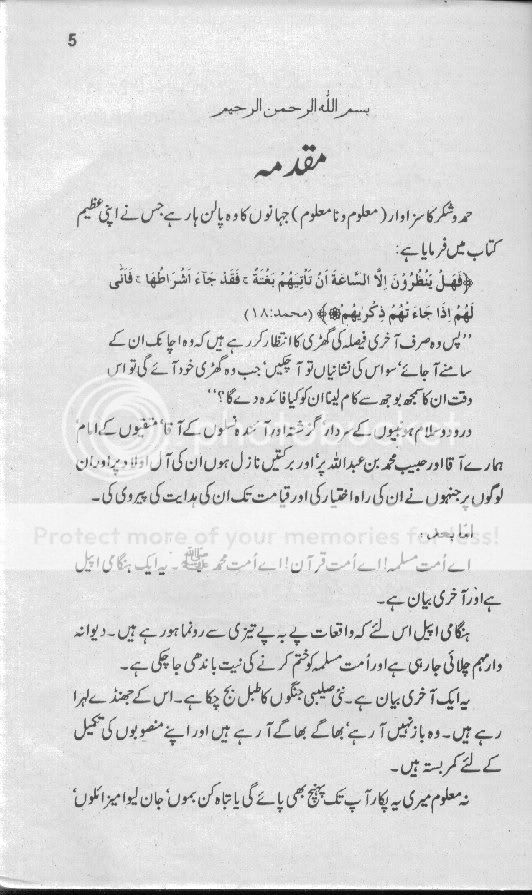 5
بسم اللہ الرحمن الرحیم
مقدمہ
حمد و شکر کا سزاوار (معلوم و نا معلوم) جہانوں کا وہ پالن ہار ہے جس نے اپنی عظیم
کتاب میں فرمایا ہے:
﴿فَهَلْ يَنْظُرُوْنَ اِلَّا السَّاعَةَ اَنْ تَاْتِيَهُمْ بَغْتَةً ۚ فَقَدْ جَآءَ اَشْرَاطُهَا ۚ فَاَنّٰى
لَهُمْ اِذَا جَآءَ تْهُمْ ذِكْرٰىهُمْ﴾ (محمد:۱۸)
’’پس وہ صرف آخری فیصلہ کی گھڑی کا انتظار کر رہے ہیں کہ وہ اچانک ان کے
سامنے آ جائے‘ سو اس کی نشانیاں تو آ چکیں‘ جب وہ گھڑی خود آئے گی تو اس
وقت ان کا سمجھ بوجھ سے کام لینا ان کو کیا فائدہ دے گا؟‘‘
درود و سلام ہو نبیوں کے سردار‘ گزشتہ اور آئندہ نسلوں کے آقا‘ متقیوں کے امام‘
ہمارے آقا اور حبیب محمد بن عبداللہ پر‘ اور برکتیں نازل ہوں ان کی آل اولاد پر اور ان
لوگوں پر جنہوں نے ان کی راہ اختیار کی اور قیامت تک ان کی ہدایت کی پیروی کی۔
اما بعد:
Protect more of your memories for less!
اے اُمت مسلمہ! اے اُمت قرآن! اے اُمت محمد ﷺ۔ یہ ایک ہنگامی اپیل
ہے اور آخری بیان ہے۔
ہنگامی اپیل اس لئے کہ واقعات پے بہ پے تیزی سے رونما ہو رہے ہیں۔ دیوانہ
وار مہم چلائی جا رہی ہے اور اُمت مسلمہ کو ختم کرنے کی نیت باندھی جا چکی ہے۔
یہ ایک آخری بیان ہے۔ نئی صلیبی جنگوں کا طبل بج چکا ہے۔ اس کے جھنڈے لہرا
رہے ہیں۔ وہ باز نہیں آ رہے‘ بھاگے بھاگے آ رہے ہیں اور اپنے منصوبوں کی تکمیل
کے لئے کمر بستہ ہیں۔
نہ معلوم میری یہ پکار آپ تک پہنچ بھی پائے گی یا تباہ کن بموں‘ جان لیوا میزائلوں‘